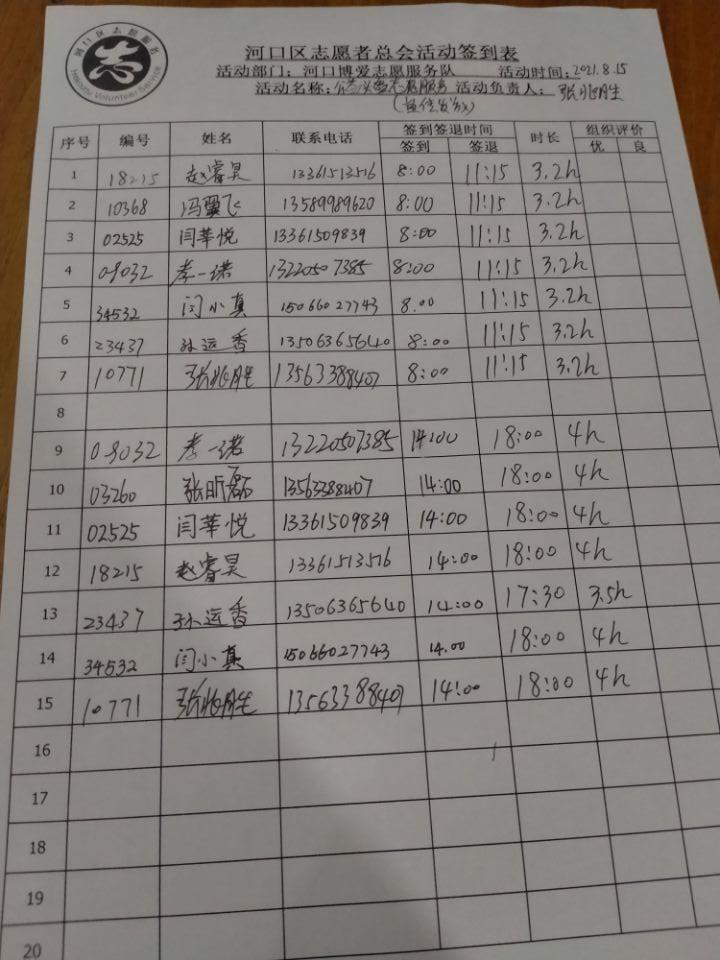 河口区志愿者服务
Hekou Volunteer Service
志
河口区志愿者总会活动签到表
活动部门：河口博爱志愿服务队 活动时间：2021.8.15
活动名称：志愿服务 活动负责人：张兆胜
序号 编号 姓名 联系电话 签到签退时间 时长 组织评价
签到 签退 优 良
1 18215 赵睿昊 13361513516 8:00 11:15 3.2h
2 10368 冯翼飞 13589989620 8:00 11:15 3.2h
3 02525 闫華悦 13361509839 8:00 11:15 3.2h
4 08032 李一诺 13220507385 8:00 11:15 3.2h
5 34532 闫小真 15066027743 8.00 11:15 3.2h
6 23437 孙运香 13506365640 8:00 11:15 3.2h
7 10771 张兆胜 13563388407 8:00 11:15 3.2h
8
9 08032 李一诺 13220507385 14:00 18:00 4h
10 03260 张昕磊 13563388407 14:00 18:00 4h
11 02525 闫華悦 13361509839 14:00 18:00 4h
12 18215 赵睿昊 13361513516 14:00 18:00 4h
13 23437 孙运香 13506365640 14:00 17:30 3.5h
14 34532 闫小真 15066027743 14.00 18:00 4h
15 10771 张兆胜 13563388407 14:00 18:00 4h
16
17
18
19
20